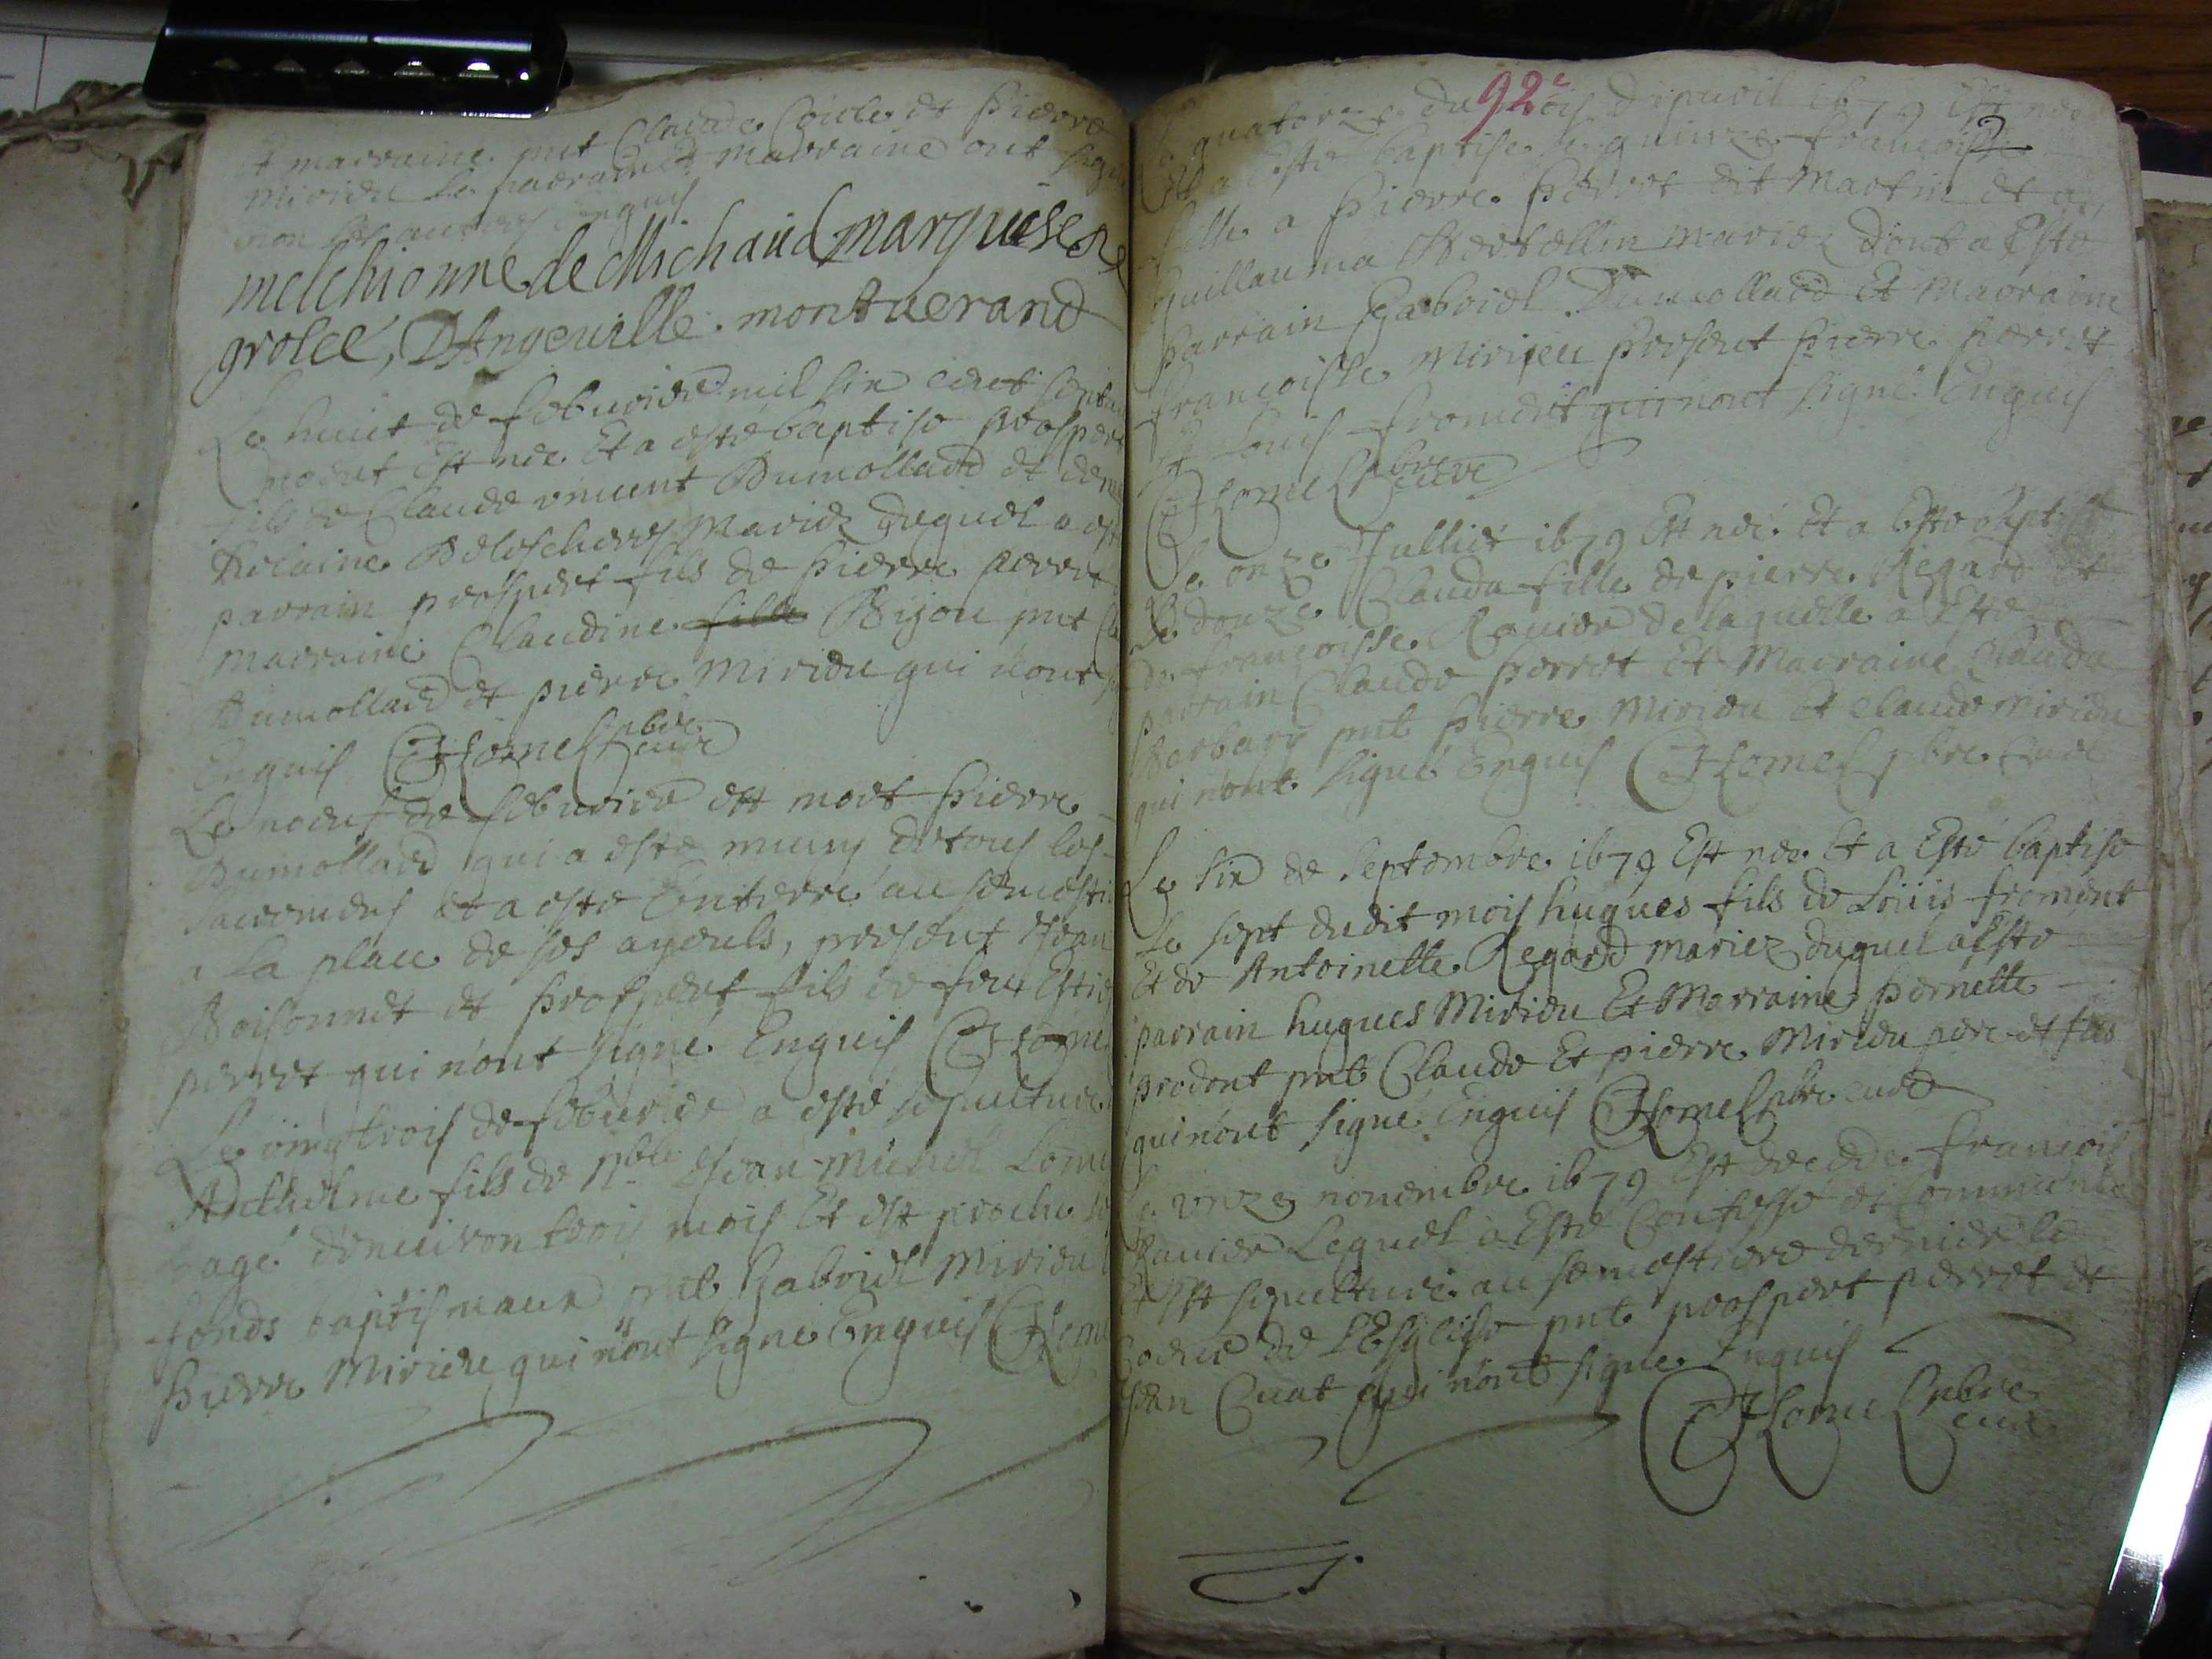 et marraine pnt Claude et Pierre
Mirieu Le parrain et marraine ont signé
non les autres Enquis
melchionne de Michaud marquise de
grolée, D'Angeuille. montuerand
Le huict de febvrier mil six cent septante
noeuf Est née Et a esté baptisé prospert
fils de Claude vincent Dumollard et de
marie
parrain prospert fils de Pierre perret
Marraine Claudine fille Bijou pnt
Dumollard et pierre Mirieu qui n'ont
Enquis CHomel pbre
curé
Le noeuf de febvrier est mort Pierre
Dumollard qui a esté muny de tous les
Sacremens et a esté Enterré au semestiere
a La place de ses ayeuls, present Jean
Boisonnet et Prospert fils de feu
perret qui n'ont signé Enquis CHomel
Le vingt trois de febvrier a esté sepulturé
Anthelme fils de Nble Jean Michel
agé d'enuiron trois mois Et est proche
fonds baptismaux pnt Gabriel Mirieu
Pierre Mirieu qui n'ont signé Enquis CHomel
92
Le quatorze du mois d'apuril 1679 Est née
Et a esté baptisé le quinze francoise
fille a Pierre Perret dit Martin et a
guillauma Bertollin mariez dont a Esté
Parrain Gabriel Dumollard Et Marraine
francoise Mirieu present Pierre perret
et Louis froment qui n'ont signé Enquis
CHomel pbre
curé
Le onze Jullié 1679 Est née Et a Esté bapt
le douze Clauda fille de pierre Regard et
de francoisse Rouier de laquelle a Esté
parrain Claude Perret Et Marraine Clauda
Barbary pnt Pierre Mirieu et claude Mirieu
qui n'ont signé Enquis CHomel pbre curé
Le six de septembre 1679 Est née Et a Esté baptisé
Le sept dudit mois hugues fils de Loüis froment
Et de Antoinette Regard mariez duquel a Esté
parrain hugues Mirieu Et Marraine Pernette
prodont pnt Claude Et pierre Mirieu pere et fils
qui n'ont signé Enquis CHomel pbre curé
Le unze novembre 1679 Est decede francois
Rauier Lequel a Esté Confessé et Communié
Et Est sepulturé au semestiere dernier le
coeur de L'Esglise pnt prospert perret et
Jean Cuat qui n'ont signé Enquis
CHomel pbre
curé